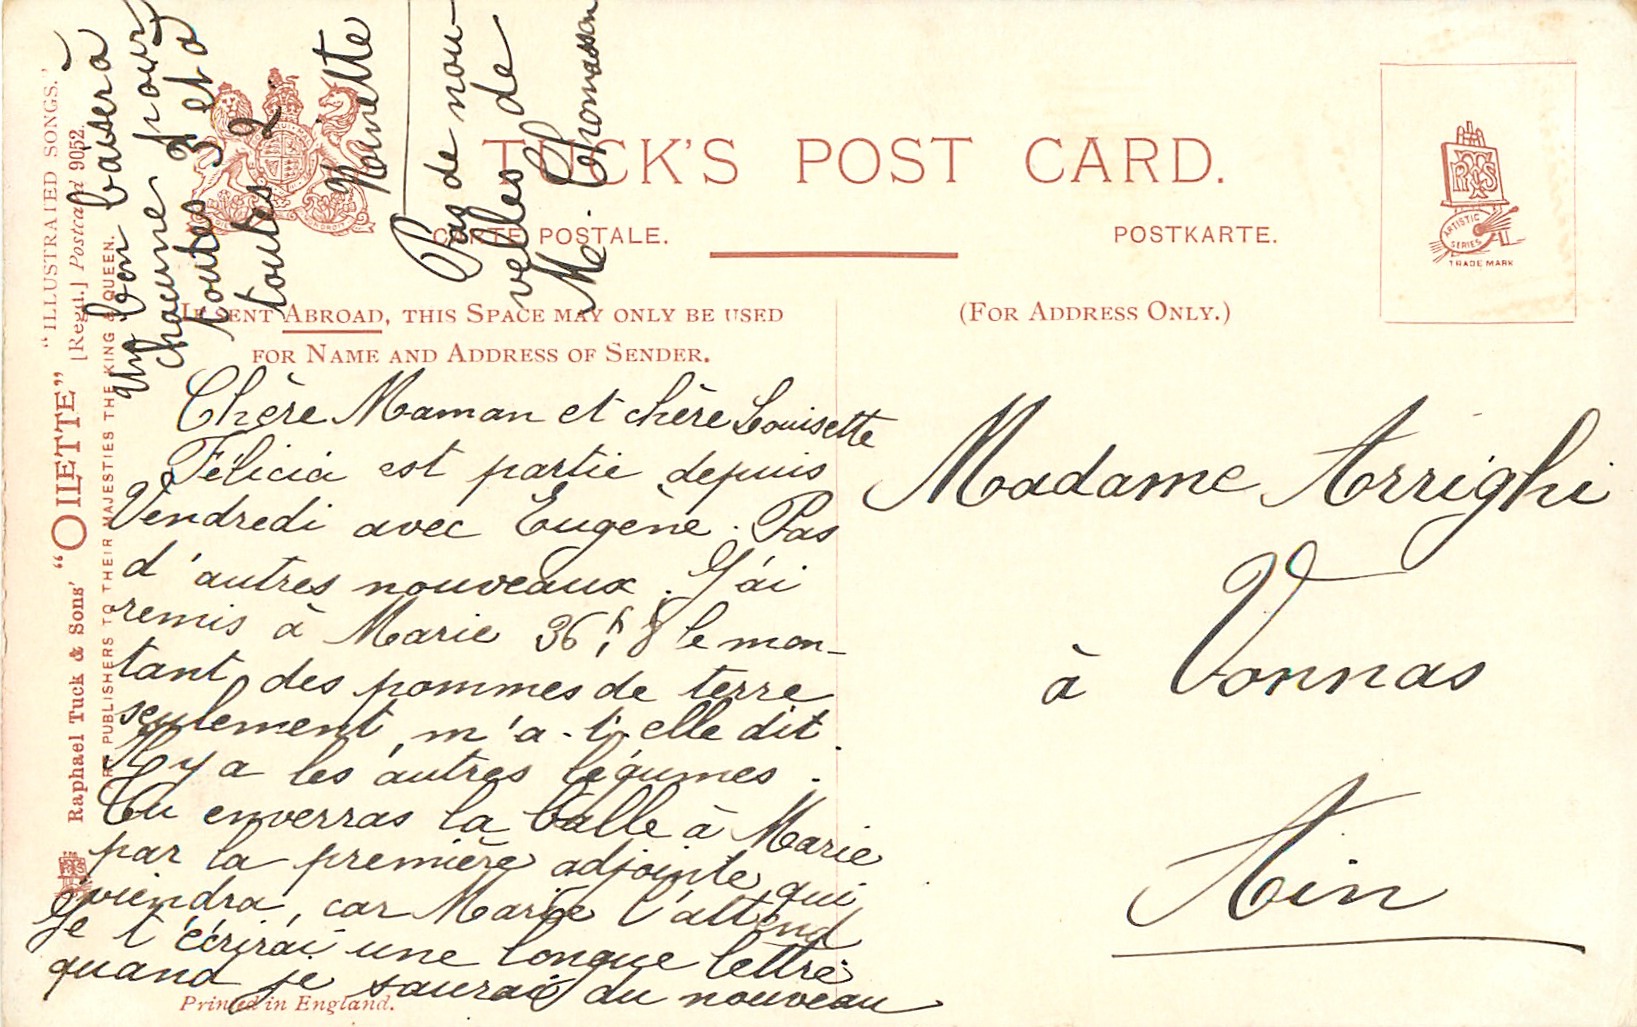 TUCK'S POST CARD.
CARTE POSTALE.
POSTKARTE.
If sent Abroad, this Space may only be used
for Name and Address of Sender.
(For Address Only.)
ARTISTIC
SERIES
TRADE MARK
"ILLUSTRATED SONGS."
[Regd.] Postcard 9052.
Raphael Tuck & Sons' "OILETTE"
PUBLISHERS TO THEIR MAJESTIES THE KING & QUEEN.
Printed in England.
Chère Maman et chère Louisette
Félicia est partie depuis
Vendredi avec Eugène. Pas
d'autres nouveaux. J'ai
remis à Marie 36f,8 le mon-
tant des pommes de terre
seulement, m'a-t-elle dit.
Il y a les autres légumes.
Tu enverras la balle à Marie
par la première adjointe qui
viendra, car Marie l'attend
Je t'écrirai une longue lettre
quand je saurai du nouveau
Un bon baiser à
chacune pour
toutes 3 et à
toutes 2
Nanette
Pas de nou-
velles de
Me. Thomasson
Madame Arrighi
à Vonnas
Ain